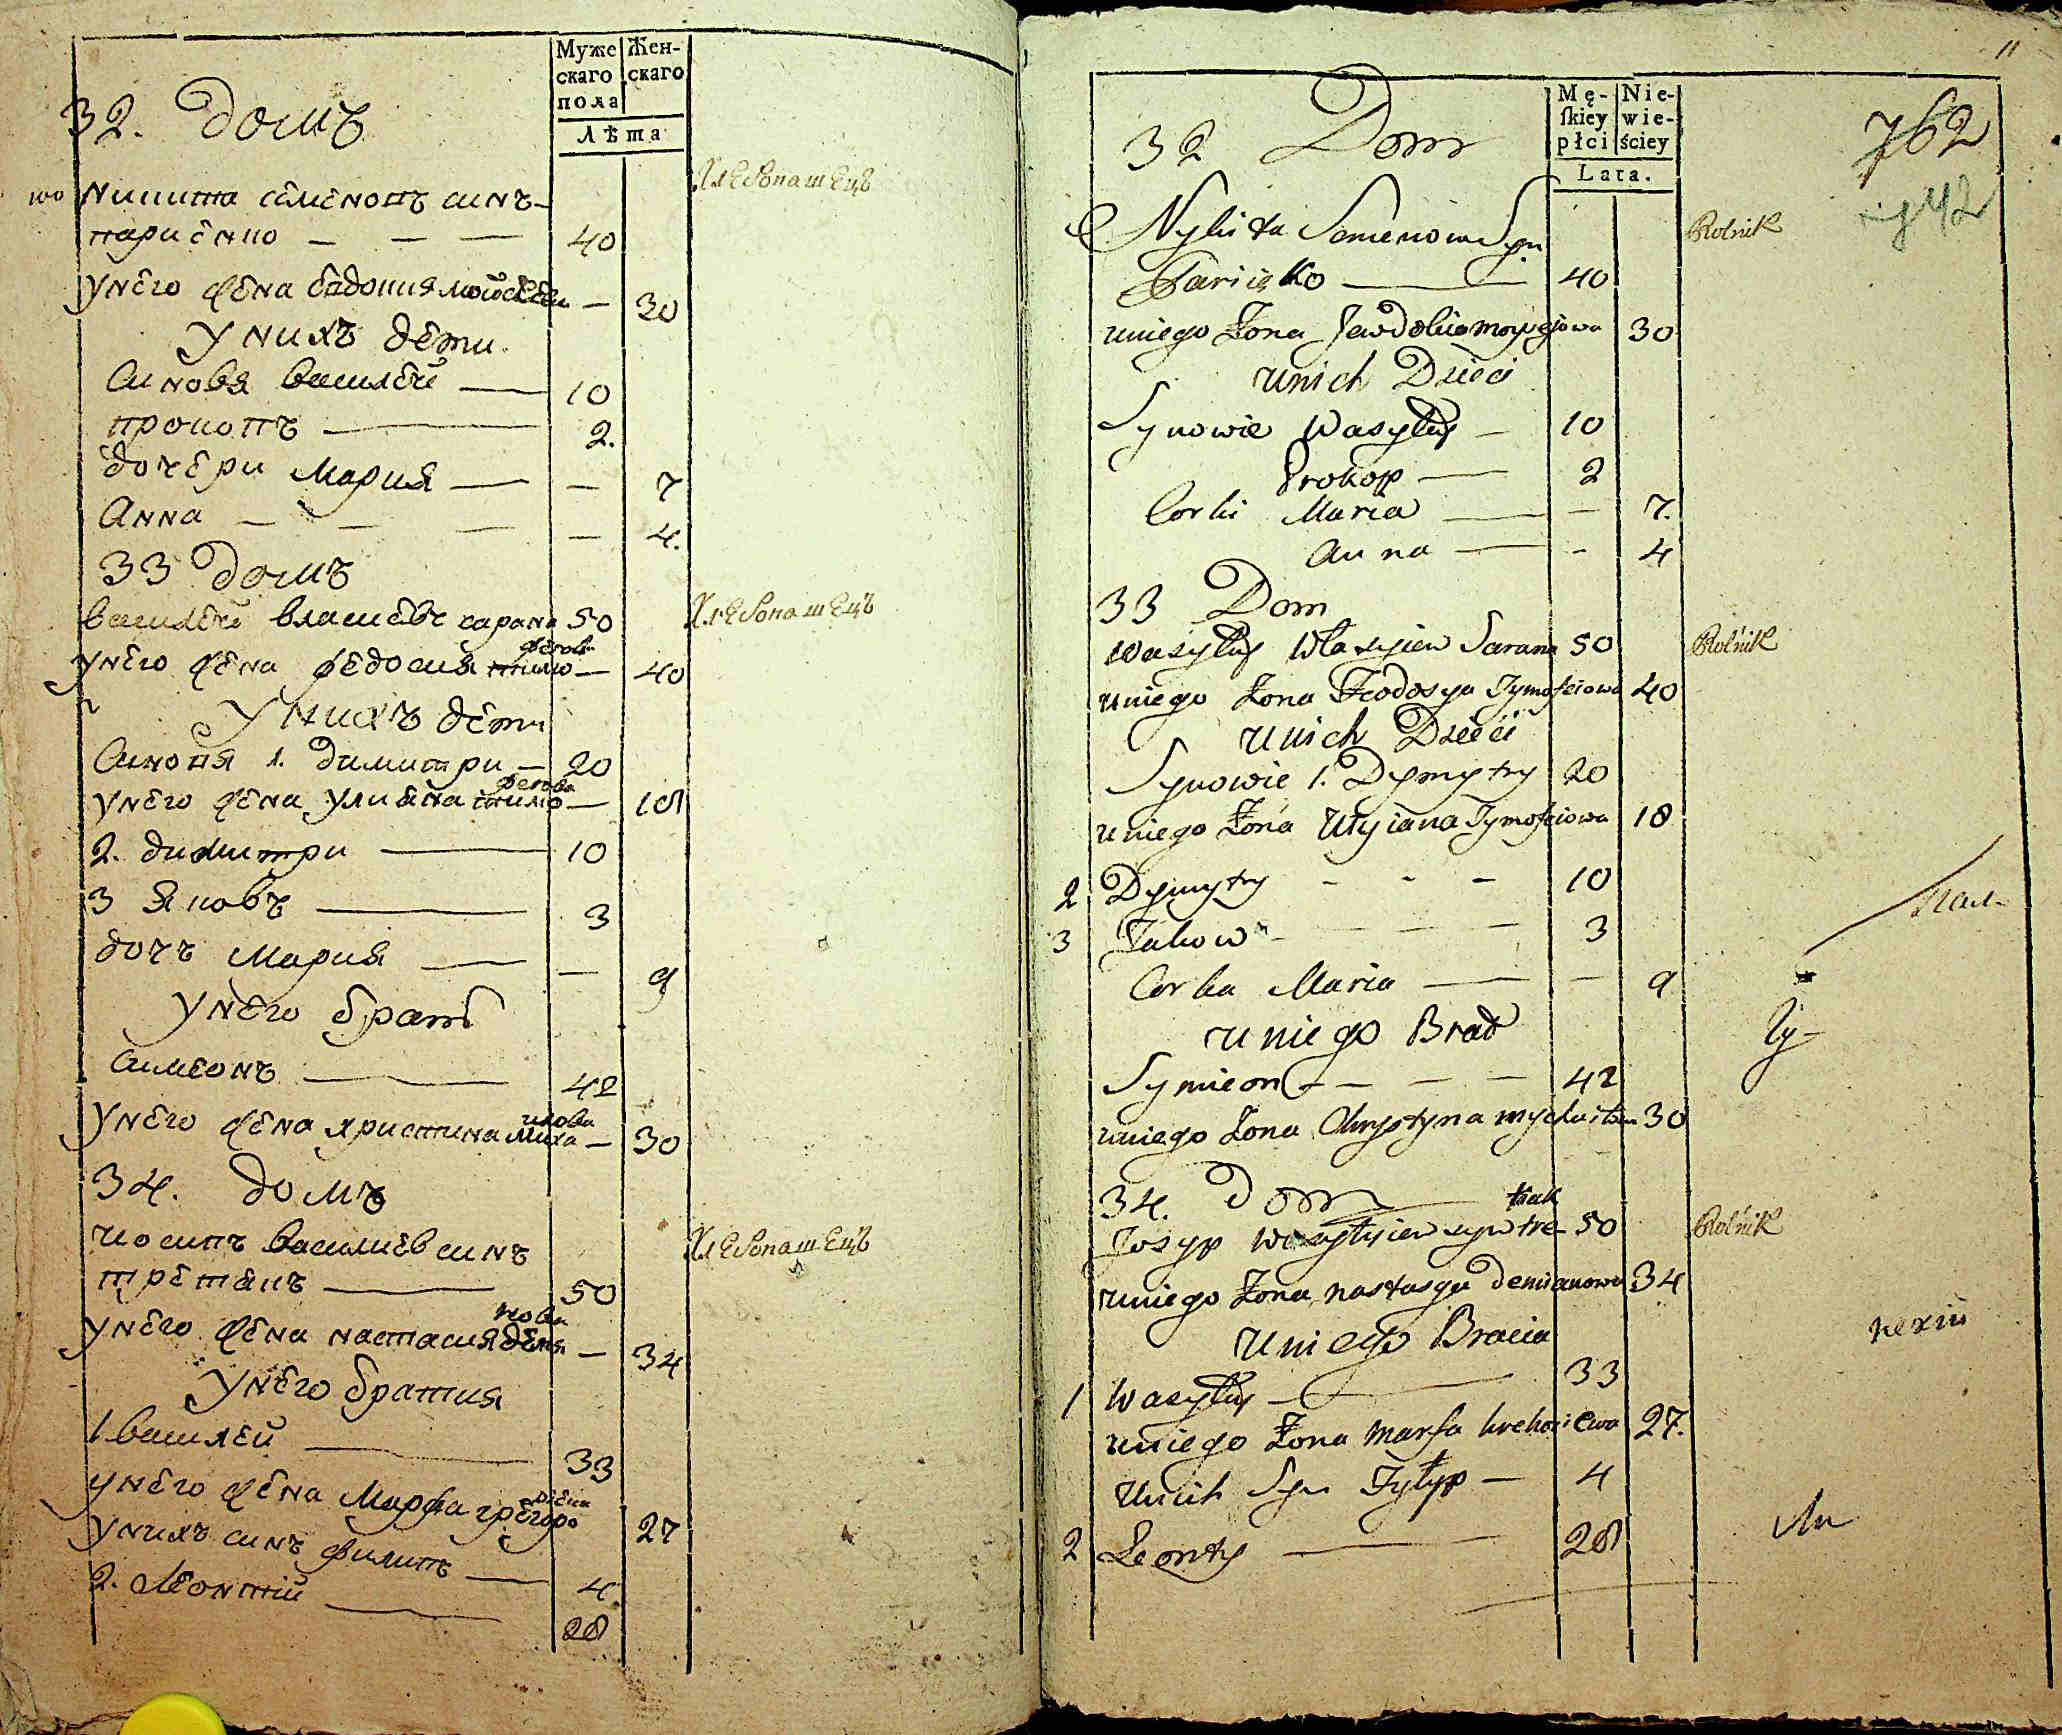 Муже
скаго
пола
Жен-
скаго
лѣта
32. домъ
никита семеновъ синъ
париенко 40
унего жена 30
унихъ дети
синовя василей 10
прокопъ 2.
дочери Мария 7
Анна 4.
33 домъ
василей власиевъ сарана 50
унего жена федосия тимо 40
феева
унихъ дети
синовя 1. димитри 20
унего жена улияна тимо 18
феева
2. димитри 10
3 Яковъ 3
дочъ Мария 9
унего братъ
симеонъ 42
унего жена христина миха 30
илова
34. домъ
иосипъ василиев синъ
третякъ 50
унего жена настасия демя 34
нова
унего братия
1 василей 33
унего жена Марфа грегоро 27
виева
унихъ синъ филипъ 4
2. Леонтий 28
хлебопашецъ
хлебопашецъ
хлебопашецъ
11
Mę-
skiey
płci
Nie-
wie-
ściey
Lata.
762
32 Dom
Nykita Semenow Syn
Pariieko 40
uniego Żona Jewdokia 30
unich Dzieci
Synowie Wasyley 10
Prokop 2
Corki Maria 7.
Anna 4
33 Dom
Wasyley Własyiew Sarana 50
uniego Żona Feodosya Tymofeiowa 40
unich Dzieci
Synowie 1. Dymytry 20
uniego Żona Ulyiana Tymofeiowa 18
2 Dymytry 10
3 Jakow 3
Corka Maria 9
uniego Brad
Symieon 42
uniego Żona Chrystyna 30
34. Dom
tiak
Josyp Wasylyiew syn tre 50
uniego Żona nastasya Demianowa 34
uniego Bracia
1 Wasyley 33
uniego Żona Marfa hrehoriewa 27.
Unich Syn Fylyp 4
2 Leonty 28
Rolnik
Rolnik
Rolnik